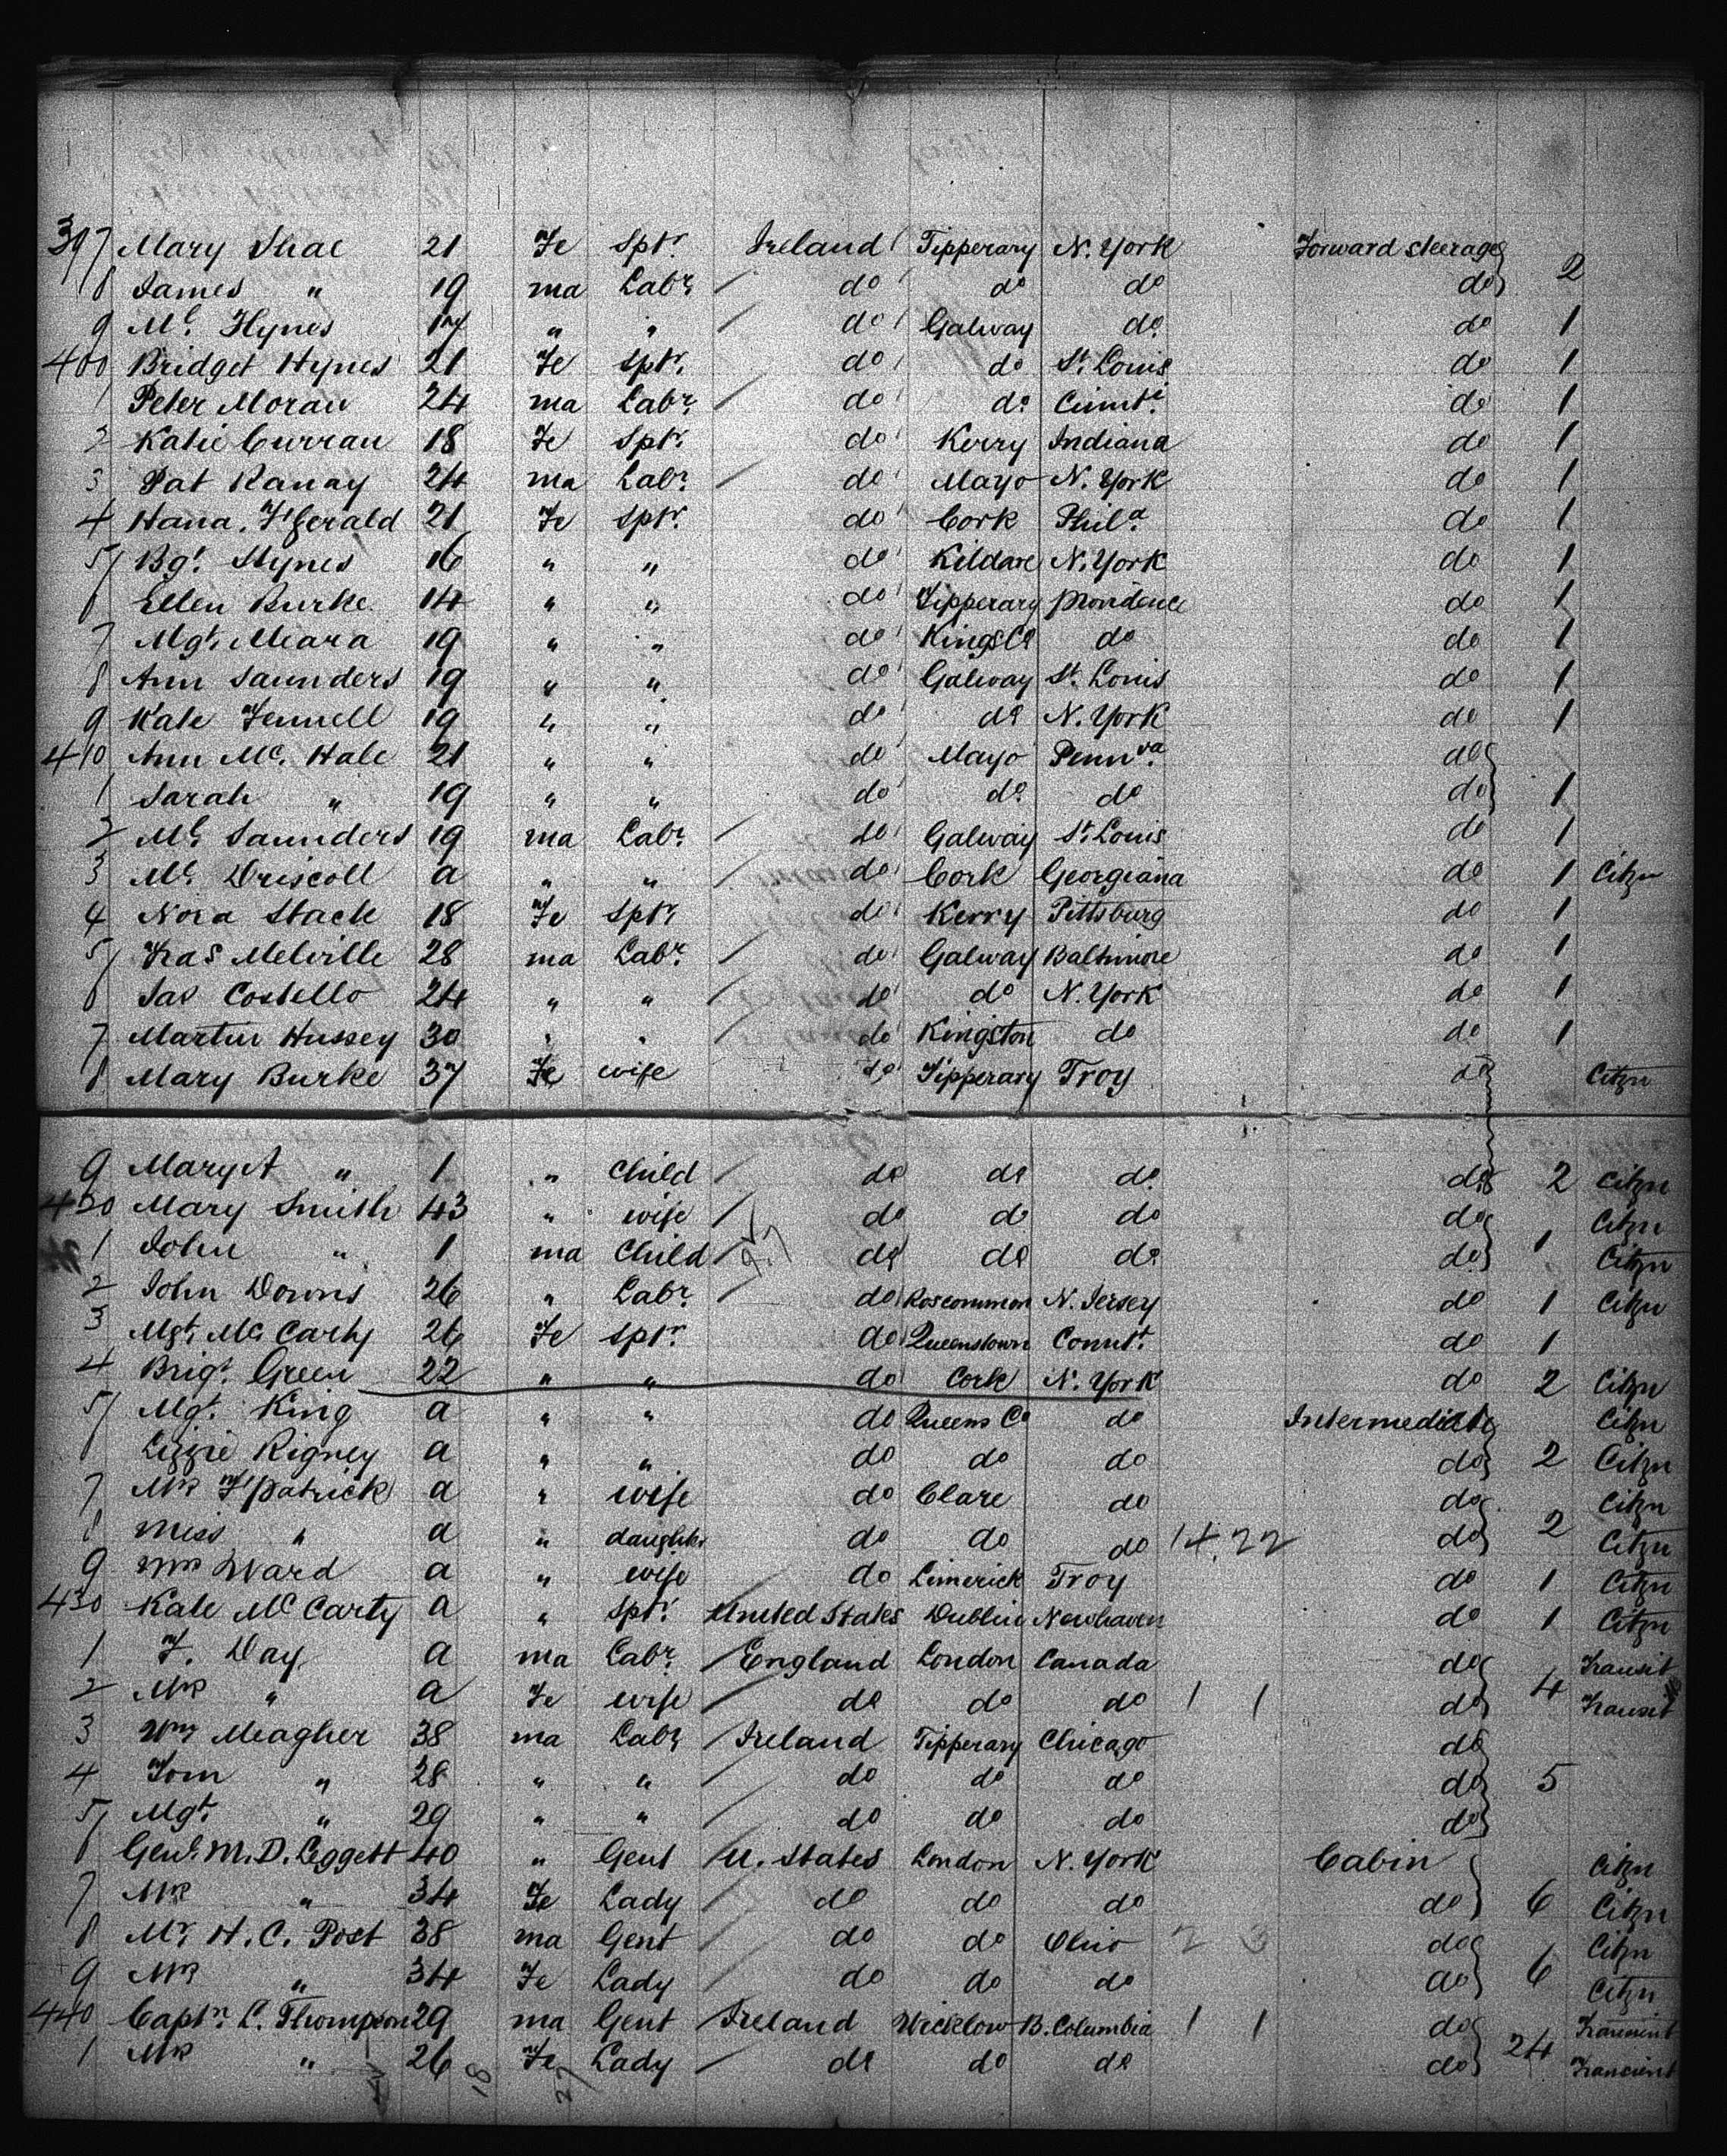 397 Mary Shae 21 Fe Sptr Ireland Tipperary N. York Forward Steerage
8 James " 19 ma Labr do do do do 2
9 Ml. Hynes 17 " " do Galway do do 1
400 Bridget Hynes 21 Fe Sptr. do do St. Louis do 1
1 Peter Moran 24 ma Labr. do do Cinnti. do 1
2 Katie Curran 18 Fe Sptr. do Kerry Indiana do 1
3 Pat Ranay 24 ma Labr. do Mayo N. York do 1
4 Hana. Ftzgerald 21 Fe Sptr. do Cork Phila. do 1
5 Bgt. Hynes 16 " " do Kildare N. York do 1
6 Ellen Burke 14 " " do Tipperary Providence do 1
7 Mgt. Meara 19 " " do Kings Co do do 1
8 Ann Saunders 19 " " do Galway St. Louis do 1
9 Kate Fennell 19 " " do do N. York do 1
410 Ann Mc. Hale 21 " " do Mayo Pennva. do
1 Sarah " 19 " " do do do do 1
2 Ml. Saunders 19 ma Labr do Galway St. Louis do 1
3 Ml. Driscoll a " " do Cork Georgiana do 1 Citzn
4 Nora Stack 18 Fe Sptr. do Kerry Pittsburg do 1
5 Fras Melville 28 ma Labr. do Galway Baltimore do 1
6 Jas Costello 24 " " do do N. York do 1
7 Martin Hussey 30 " " do Kingston do do 1
8 Mary Burke 37 Fe wife do Tipperary Troy do Citzn
9 Mary A " 1 " Child do do do do 2 Citzn
420 Mary Smith 43 " wife do do do do Citzn
1 John " 1 ma Child do do do do 1 Citzn
2 John Downs 26 " Labr. do Roscommon N. Jersey do 1 Citzn
3 Mgt. Mc. Carty 26 Fe Sptr. do Queenstown Connt. do 1
4 Brigt. Green 22 " " do Cork N. York do 2 Citzn
5 Mgt. King a " " do Queens Co do Intermediate Citzn
6 Lizzie Rigney a " " do do do do 2 Citzn
7 Mrs Ftzpatrick a " wife do Clare do do Citzn
8 Miss " a " daughter do do do 14.22 do 2 Citzn
9 Mrs Ward a " wife do Limerick Troy do 1 Citzn
430 Kate Mc Carty a " Sptr. United States Dublin Newhaven do 1 Citzn
1 F. Day a ma Labr. England London Canada do Transit
2 Mrs " a Fe wife do do do 1 1 do 4 Transit
3 Wm Meagher 38 ma Labr Ireland Tipperary Chicago do
4 Tom " 28 " " do do do do 5
5 Mgt. " 29 " " do do do do
6 Genl. M. D. Leggett 40 " Gent U. States London N. York Cabin Citzn
7 Mrs " 34 Fe Lady do do do do 6 Citzn
8 Mr. H. C. Post 38 ma Gent do do Ohio 2 3 do Citzn
9 Mrs " 34 Fe Lady do do do do 6 Citzn
440 Captn. L. Thompson 29 ma Gent Ireland Wicklow B. Columbia 1 1 do Transient
1 Mrs " 26 Fe Lady do do do do 24 Transient
18 27